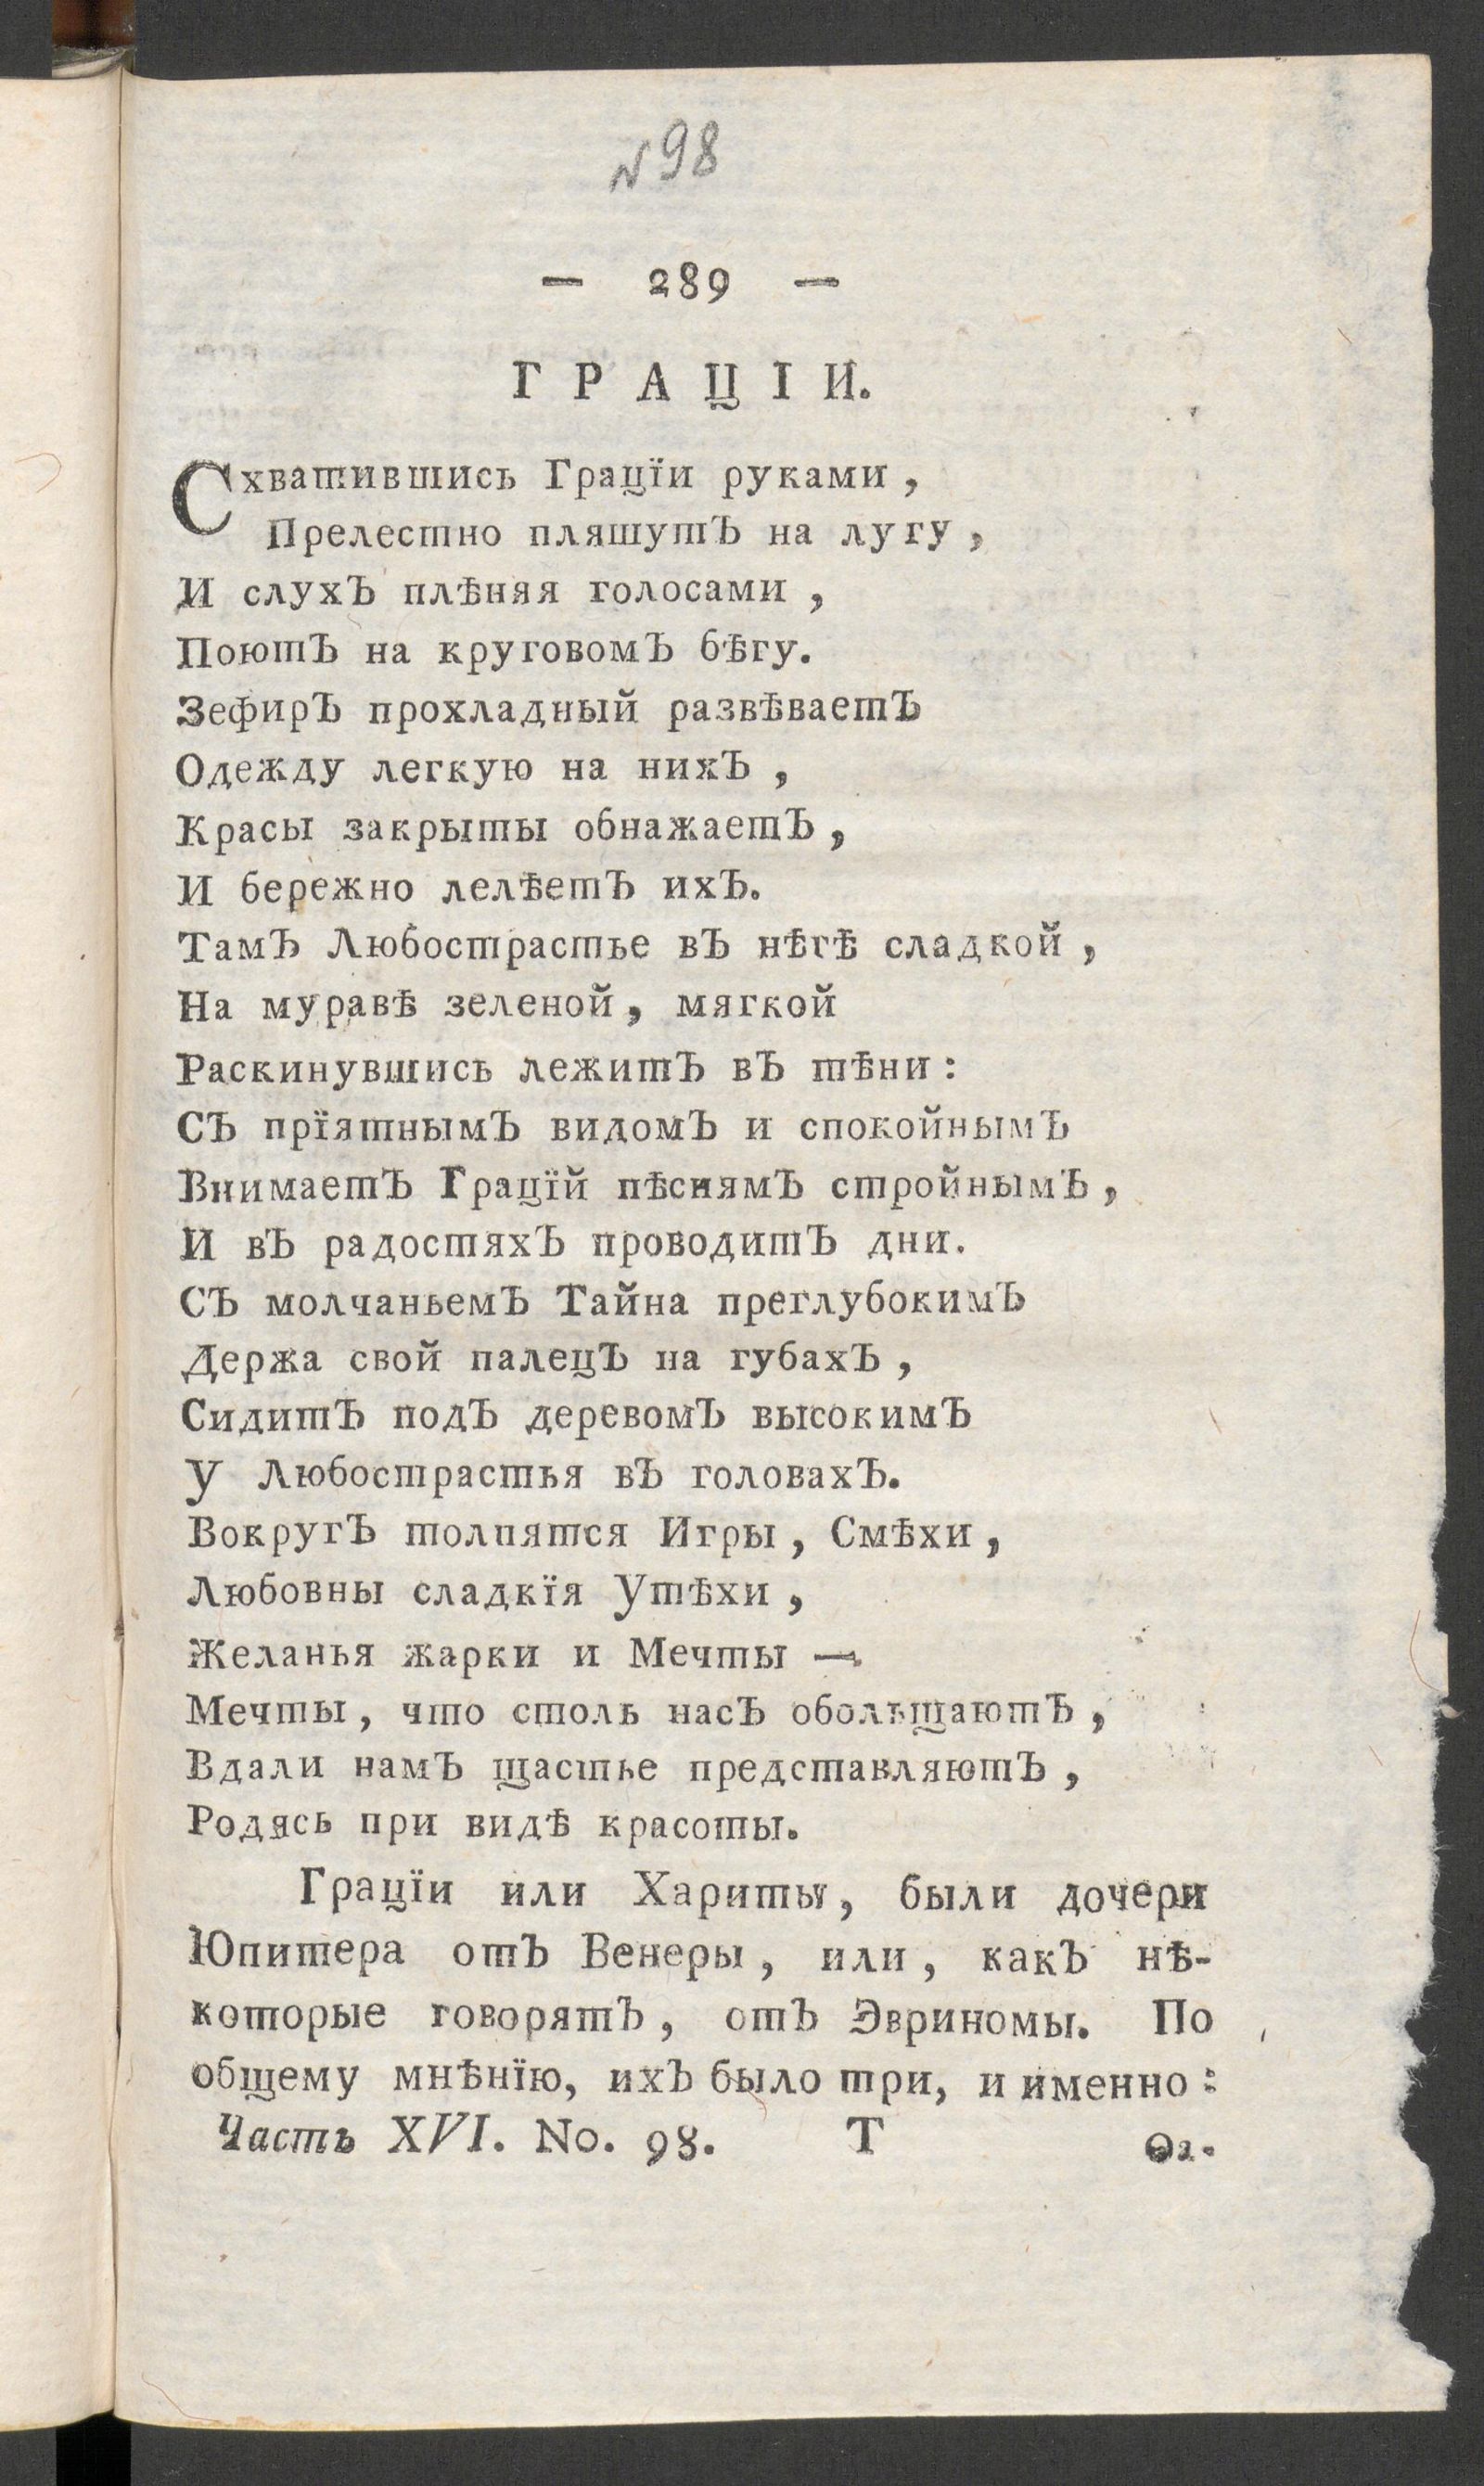 N 98
— 289 —
ГРАЦІИ.
Схватившись Граціи руками,
Прелестно пляшутъ на лугу,
И слухъ плѣняя голосами,
Поютъ на круговомъ бѣгу.
Зефиръ прохладный развѣваетъ
Одежду легкую на нихъ,
Красы закрыты обнажаетъ,
И бережно лелѣетъ ихъ.
Тамъ Любострастье въ нѣгѣ сладкой,
На муравѣ зеленой, мягкой
Раскинувшись лежитъ въ тѣни:
Съ прїятнымъ видомъ и спокойнымъ
Внимаетъ Грацїй пѣснямъ стройнымъ,
И въ радостяхъ проводитъ дни.
Съ молчаньемъ Тайна преглубокимъ
Держа свой палецъ на губахъ,
Сидитъ подъ деревомъ высокимъ
У Любострастья въ головахъ.
Вокругъ толпятся Игры, Смѣхи,
Любовны сладкїя Утѣхи,
Желанья жарки и Мечты —
Мечты, что столь насъ обольщаютъ,
Вдали намъ щастье представляютъ,
Родясь при видѣ красоты.
Грацїи или Хариты, были дочери
Юпитера отъ Венеры, или, какъ нѣ-
которые говорятъ, отъ Эвриномы. По
общему мнѣнїю, ихъ было три, и именно:
Часть XVI. No. 98. Т Ѳа-